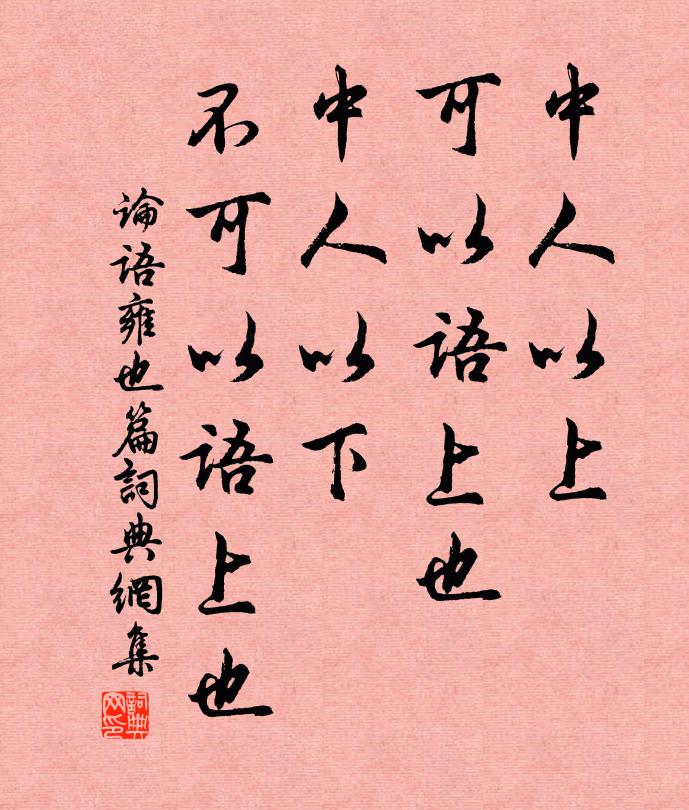 中人以上
可以語上也
中人以下
不可以語上也
論語雍也篇詞典網集
詞典网印